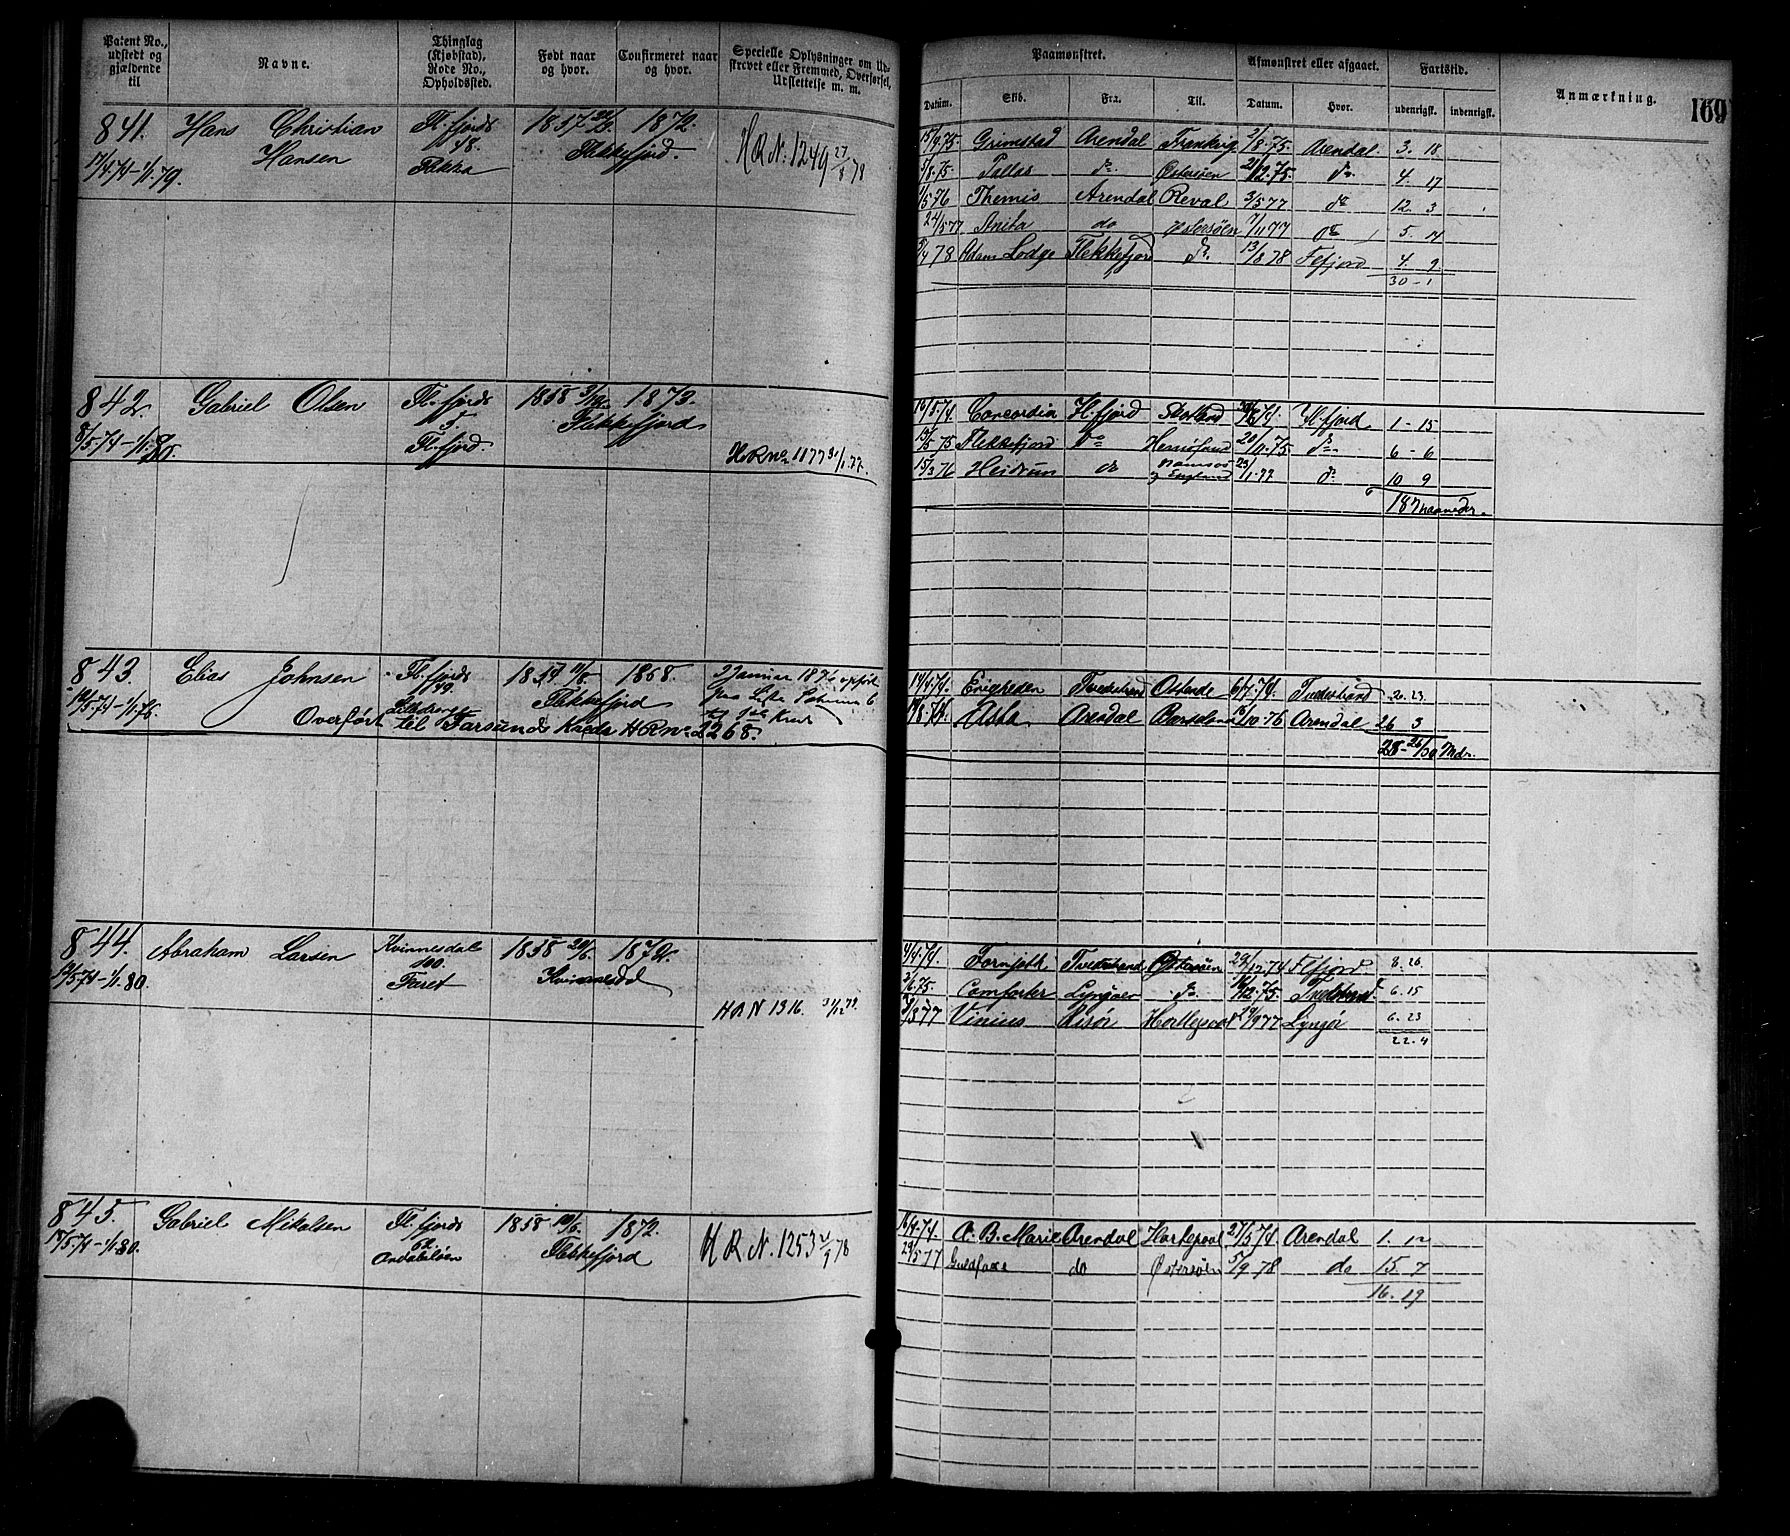 Patent No., udstedt og gjældende til
Navne.
Thinglag (Kjøbstad), Rode No., Opholdssted.
Født naar og hvor.
Confirmeret naar og hvor.
Specielle Oplysninger om Udskrevet eller Fremmed, Overførsel, Udslettelse m. m.
Paamønstret.
Afmønstret eller afgaaet.
Fartstid.
Anmærkning.
169
Datum. Skib. Fra. Til. Datum. Hvor. udenrigsk. indenrigsk.
841. Hans Christian Hansen Fl.fjords 48. 1857 1872. Flekkefjord.
17/4.74-1/1.79. HRN. 1249 27/8 78
Grimstad Arendal 2/8.75. Arendal 3. 18
5/8.75. Pallas do Østersøen 21/12.75. do 4. 17
1/5 76 Themis Arendal Reval 3/5 77 do 12. 3
24/5 77 Anita do Østersøen 7/11 77 do 5. 14
5/4 78 Adams Lodge Flekkefjord do 13/8 78 Flfjord 4. 9
30 - 1
842. Gabriel Olsen Fl.fjords 5. Fl.fjord. 1858 1873. Flekkefjord
8/5.74-1/1.80. HRno 1177 31/1.77.
16/5.74 Concordia Flfjord Flfjord 1-15
13/5 75 Flekkefjord do 20/10.75. do 6-6
15/3 76 Heidrun do Namsos og England 23/1.77 do 10 9
18 maaneder.
843. Elias Johnsen Fl.fjords 149. 1854 11/8. 1868. Flekkefjord
Januar 1876 opført paa Liste
12/5.74-1/1.76.
Overført til Farsunds Kreds HRno 2268.
14/4.74. Enigheden Tvedestrand Ostende 6/7.74. Tvedestrand 2. 23.
Asta Arendal 15/10.76 Arendal 26 3
28-26/30 Mdr.
844. Abraham Larsen Kvinnesdal 100. 1858 20/6. 1872.
12/5.74-1/1.80. HRN 1316.
4/4.74. Tvedestrand Østersøen 29/12.74 Flfjord 8. 26
3/6.75. Comforter Lyngøer do 16/12.75. Tvedestrand. 6. 15
Vinius Risør 29/9 77 Lyngør 6. 23
22. 4
845. Gabriel Mikalsen Fl.fjords 62. Andabeløen 1858 10/6. 1872. Flekkefjord
13/5.74-1/1.80. HRN. 1253 2/9 78
16/4.74. A. B. Marie Arendal Hartlepool 27/5 74 Arendal 1. 12
29/5 77 Guldfaxe do Østersøen 5/9 78 do 15. 7
16. 19